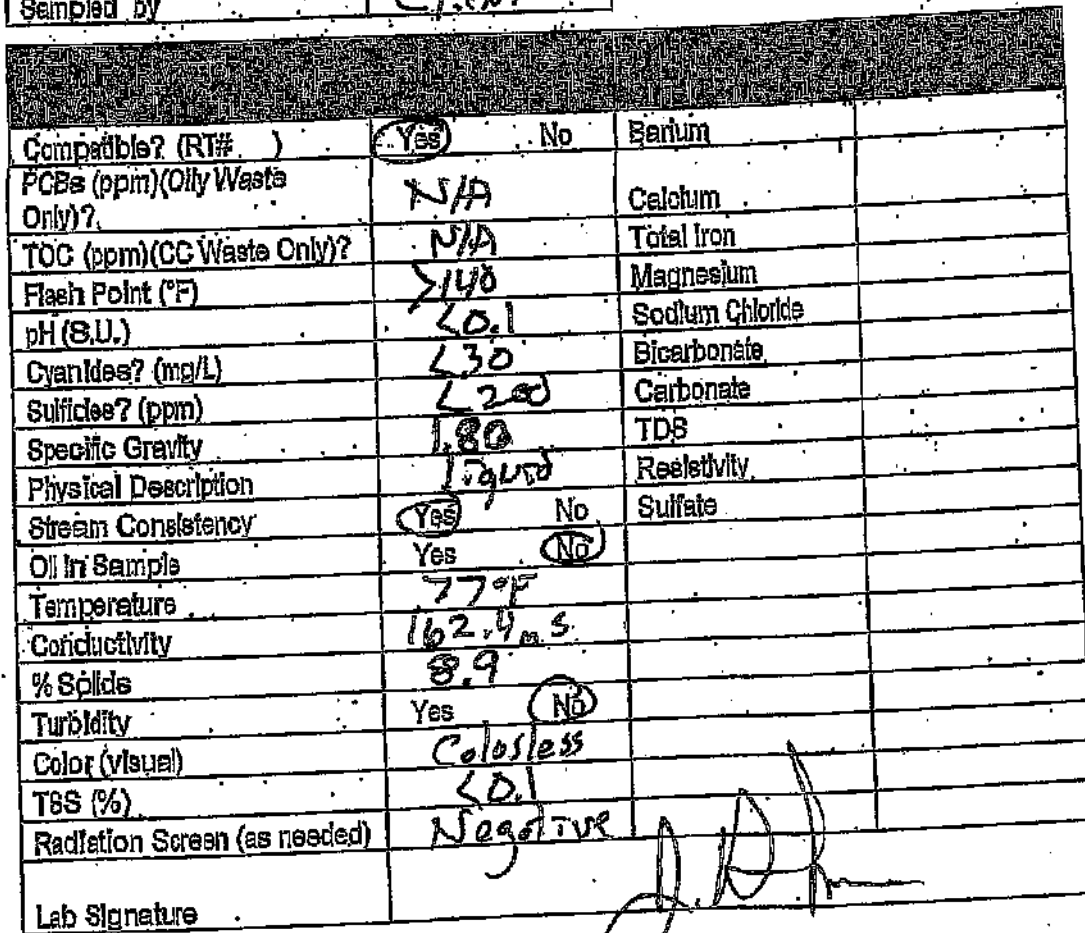 Sampled by Client
Compatible? (RT# ) Yes No Barium
PCBs (ppm)(Oily Waste Only)? N/A Calcium
TOC (ppm)(CC Waste Only)? N/A Total Iron
Flash Point (°F) >140 Magnesium
pH (S.U.) <0.1 Sodium Chloride
Cyanides? (mg/L) <30 Bicarbonate
Sulfides? (ppm) <200 Carbonate
Specific Gravity 1.80 TDS
Physical Description liquid Resistivity
Stream Consistency Yes No Sulfate
Oil in Sample Yes No
Temperature 77°F
Conductivity 162.4 mS
% Solids 8.9
Turbidity Yes No
Color (visual) Colorless
TSS (%) <0.1
Radiation Screen (as needed) Negative
Lab Signature